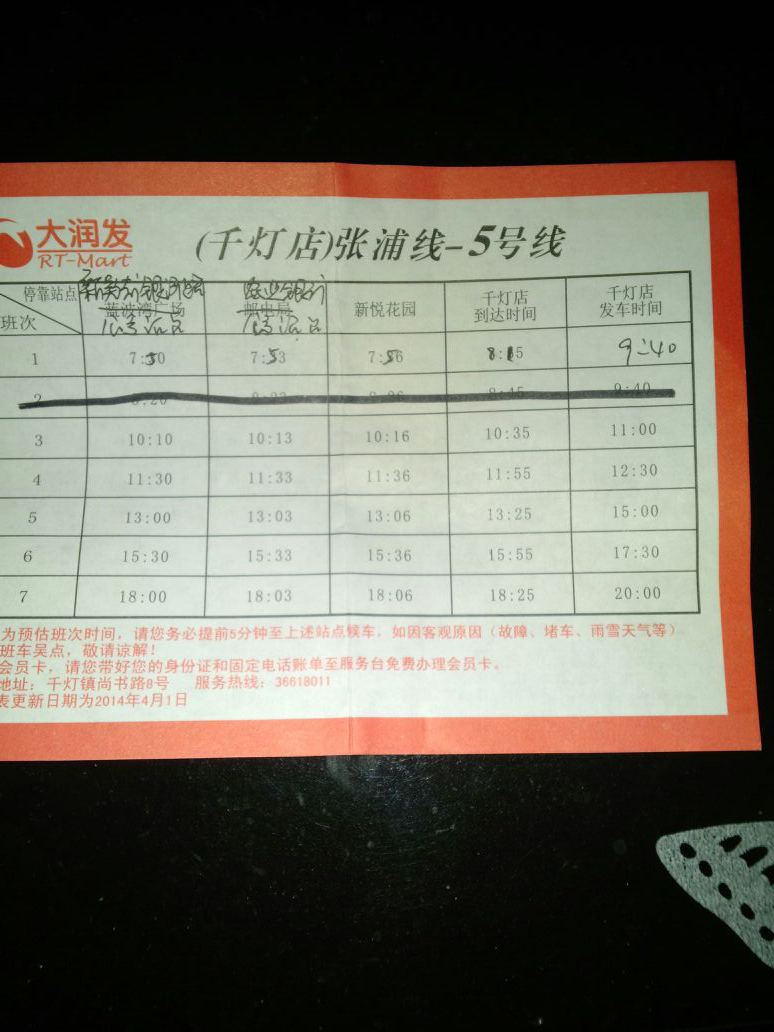 大润发
RT-Mart
(千灯店)张浦线-5号线
停靠站点 蓝波湾广场 邮电局 新悦花园 千灯店到达时间 千灯店发车时间
班次
1 7:50 7:53 7:56 8:15 9:40
2 8:20 8:23 8:26 8:45 9:40
3 10:10 10:13 10:16 10:35 11:00
4 11:30 11:33 11:36 11:55 12:30
5 13:00 13:03 13:06 13:25 15:00
6 15:30 15:33 15:36 15:55 17:30
7 18:00 18:03 18:06 18:25 20:00
为预估班次时间，请您务必提前5分钟至上述站点候车，如因客观原因（故障、堵车、雨雪天气等）
班车吴点，敬请谅解！
会员卡，请您带好您的身份证和固定电话账单至服务台免费办理会员卡。
地址：千灯镇尚书路8号 服务热线：36618011
表更新日期为2014年4月1日